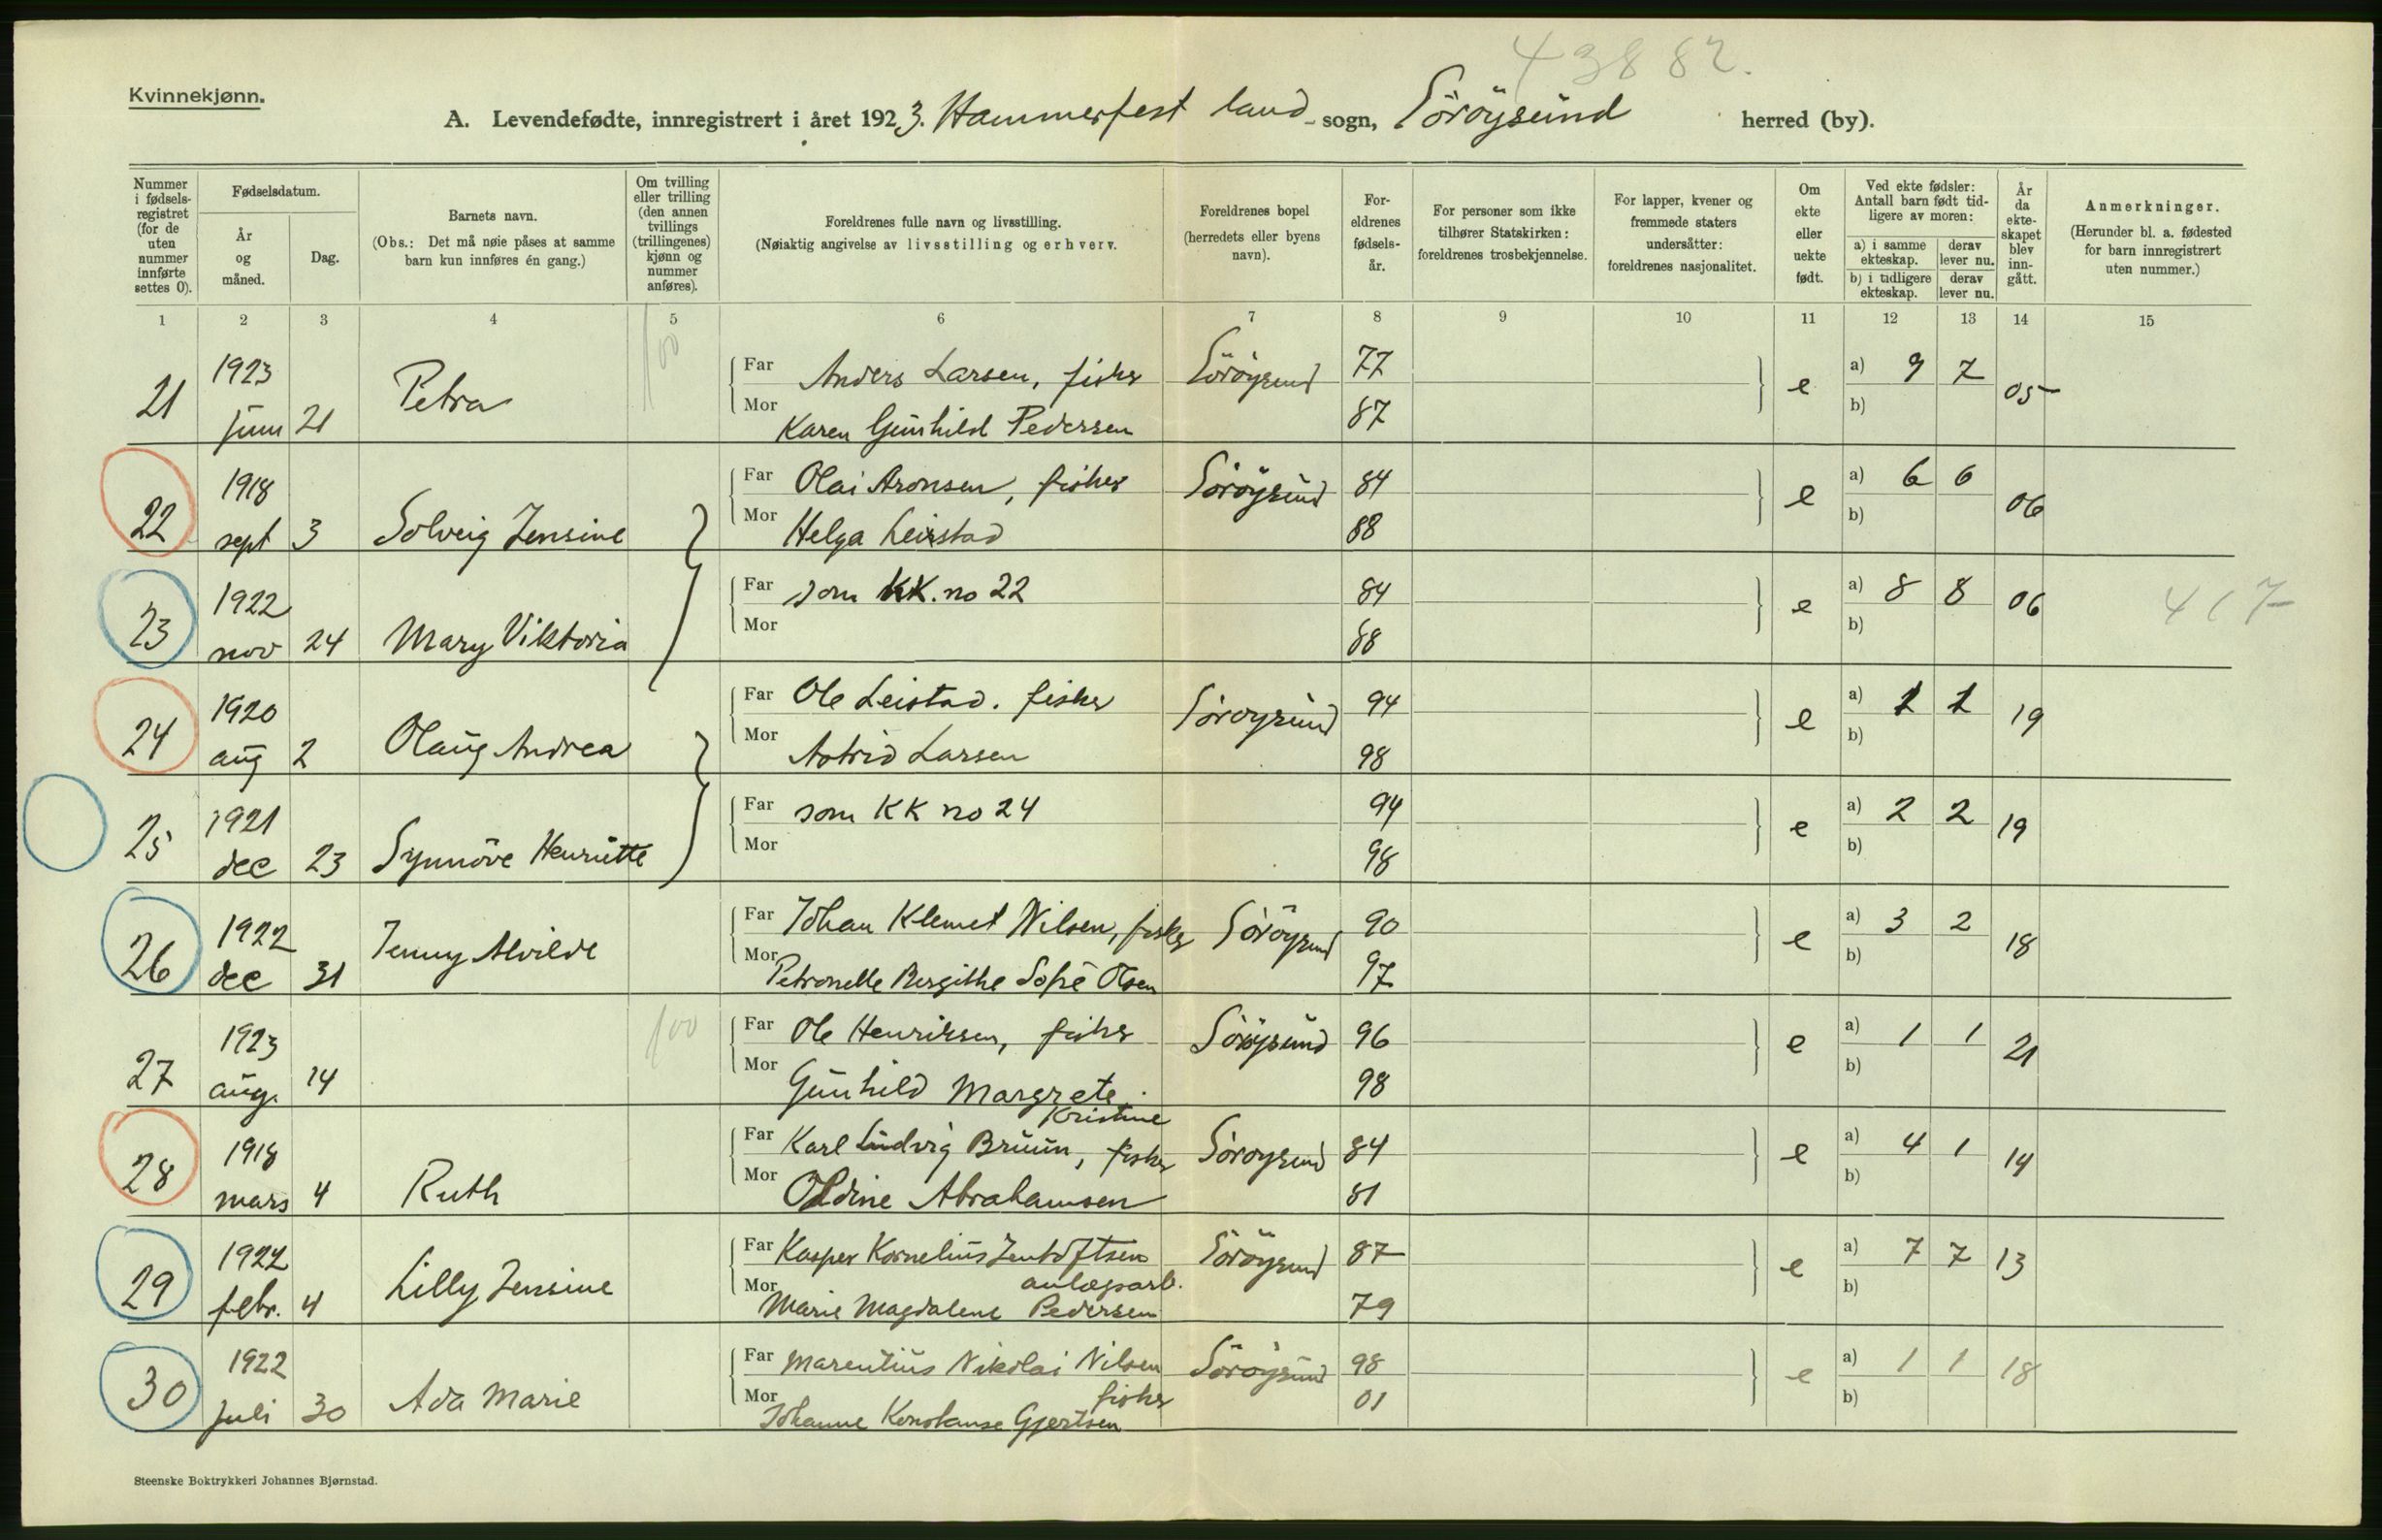 43882.
Kvinnekjønn.
A. Levendefødte, innregistrert i året 1923. Hammerfest land sogn, Söröysund herred (by).
Nummer i fødsels-registret (for de uten nummer innførte settes 0).
Fødselsdatum.
År og måned.
Dag.
Barnets navn.
(Obs.: Det må nøie påses at samme barn kun innføres én gang.)
Om tvilling eller trilling (den annen tvillings (trillingenes) kjønn og nummer anføres).
Foreldrenes fulle navn og livsstilling.
(Nøiaktig angivelse av livsstilling og erhverv.
Foreldrenes bopel (herredets eller byens navn).
For-eldrenes fødsels-år.
For personer som ikke tilhører Statskirken: foreldrenes trosbekjennelse.
For lapper, kvener og fremmede staters undersåtter: foreldrenes nasjonalitet.
Om ekte eller uekte født.
Ved ekte fødsler: Antall barn født tid-ligere av moren:
a) i samme ekteskap.
derav lever nu.
b) i tidligere ekteskap.
derav lever nu.
År da ekte-skapet blev inn-gått.
Anmerkninger.
(Herunder bl. a. fødested for barn innregistrert uten nummer.)
1 2 3 4 5 6 7 8 9 10 11 12 13 14 15
21 1923 juni 21 Petra 100
Far Anders Larsen, fisker Söröysund 77 e a) 9 7 05
Mor Karen Gunhild Pedersen 87 b)
22 1918 sept 3 Solveig Jensine
Far Olai Aronsen, fisker Söröysund 84 e a) 6 6 06
Mor Helga Leirstad 88 b)
23 1922 nov 24 Mary Viktoria
Far som KK. no 22 84 e a) 8 8 06 417
Mor 88 b)
24 1920 aug 2 Olaug Andrea
Far Ole Leistad. fisker Söröysund 94 e a) 1 1 19
Mor Astrid Larsen 98 b)
25 1921 dec 23 Synnöve Henriette
Far som KK no 24 94 e a) 2 2 19
Mor 98 b)
26 1922 dec 31 Jenny Alvilde
Far Johan Klemet Nilsen, fisker Söröysund 90 e a) 3 2 18
Mor Petronelle Bergithe Sofie Olsen 97 b)
27 1923 aug. 14 100
Far Ole Henriksen, fisker Söröysund 96 e a) 1 1 21
Mor Gunhild Margrete Kristine 98 b)
28 1918 mars 4 Ruth
Far Karl Ludvig Bruun, fisker Söröysund 84 e a) 4 1 14
Mor Oldine Abrahamsen 81 b)
29 1922 febr. 4 Lilly Jensine
Far Kasper Kornelius Zentoftsen anlægsarb. Söröysund 87 e a) 7 7 13
Mor Marie Magdalene Pedersen 79 b)
30 1922 juli 30 Ada Marie
Far Marentius Nikolai Nilsen fisker Söröysund 98 e a) 1 1 18
Mor Johanne Konstanse Gjertsen 01 b)
Steenske Boktrykkeri Johannes Bjørnstad.